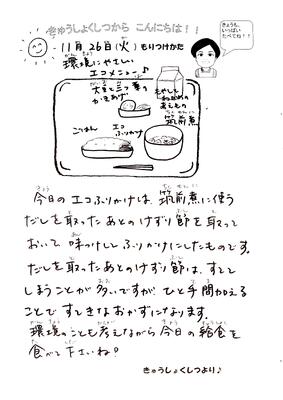 きゅうしょくしつから こんにちは！！
11月26日(火) もりつけかた
きょうも、
いっぱい
たべてね！！
環境にやさしい
エコメニュー♪
大豆と三つ葉の
かきあげ
もやしと
わかめの
あえもの
筑前煮
ごはん
エコ
ふりかけ
今日のエコふりかけは、筑前煮に使う
だしを取ったあとのけずり節を取って
おいて、味つけしふりかけにしたものです。
だしを取ったあとのけずり節は、すてて
しまうことが多いですが、ひと手間加える
ことですてきなおかずになります。
環境のことも考えながら今日の給食を
食べて下さいね？
きゅうしょくしつより♪